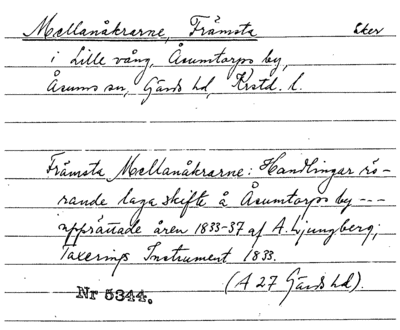 Mellanåkrarne, Främsta åker
i Lille vång, Åsumtorps by,
Åsums sn, Gärds hd, Krstd. l.
Främsta Mellanåkrarne: Handlingar rö-
rande laga skifte å Åsumtorps by ---
upprättade åren 1833-37 af A. Ljungberg;
Taxerings Instrument 1833.
(A 27 Gärds hd).
Nr 5344.